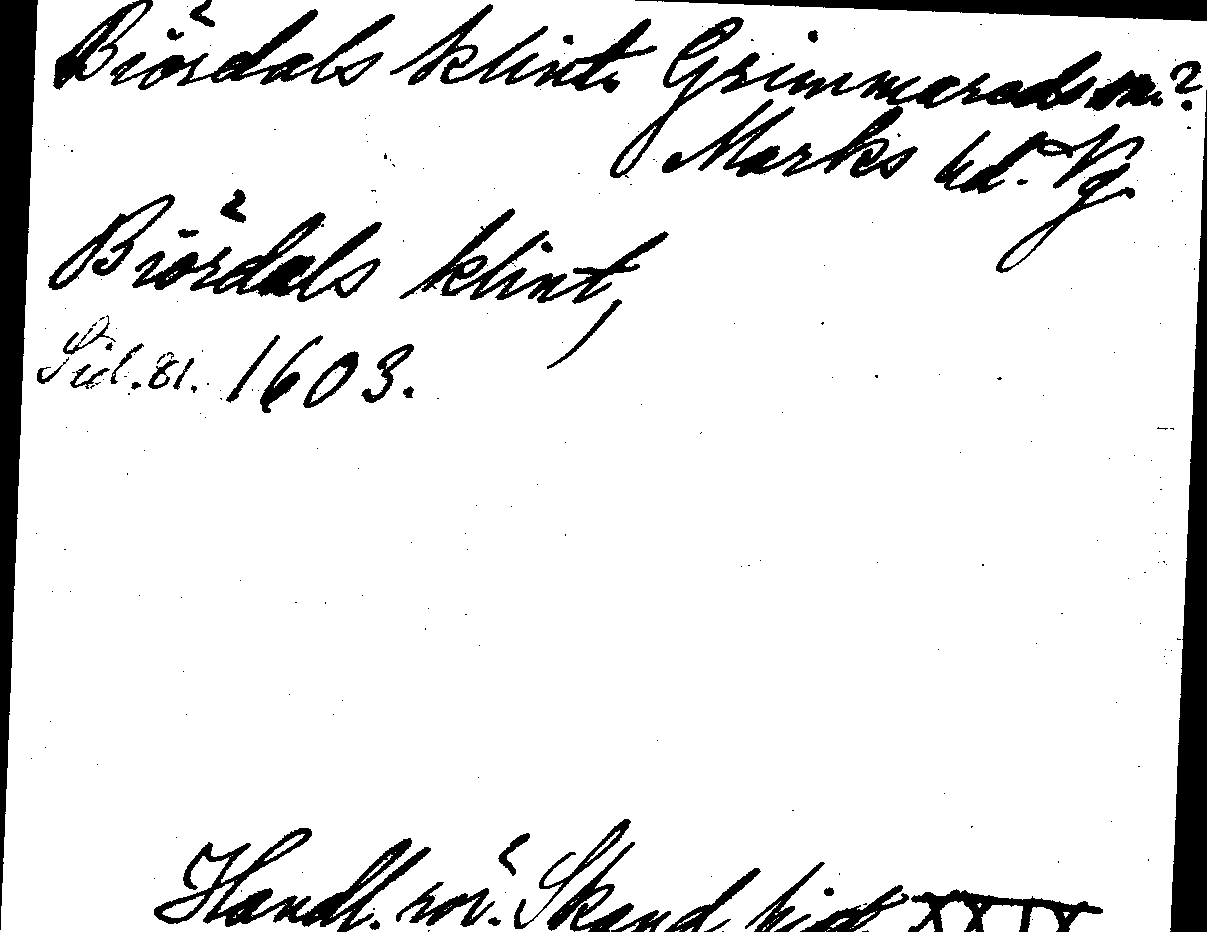 Biördals klint. Grimmareds sn.?
Marks hd. Vg.
Biördals klint,
Sid. 81. 1603.
Handl. rör. Skand. hist. XXIX